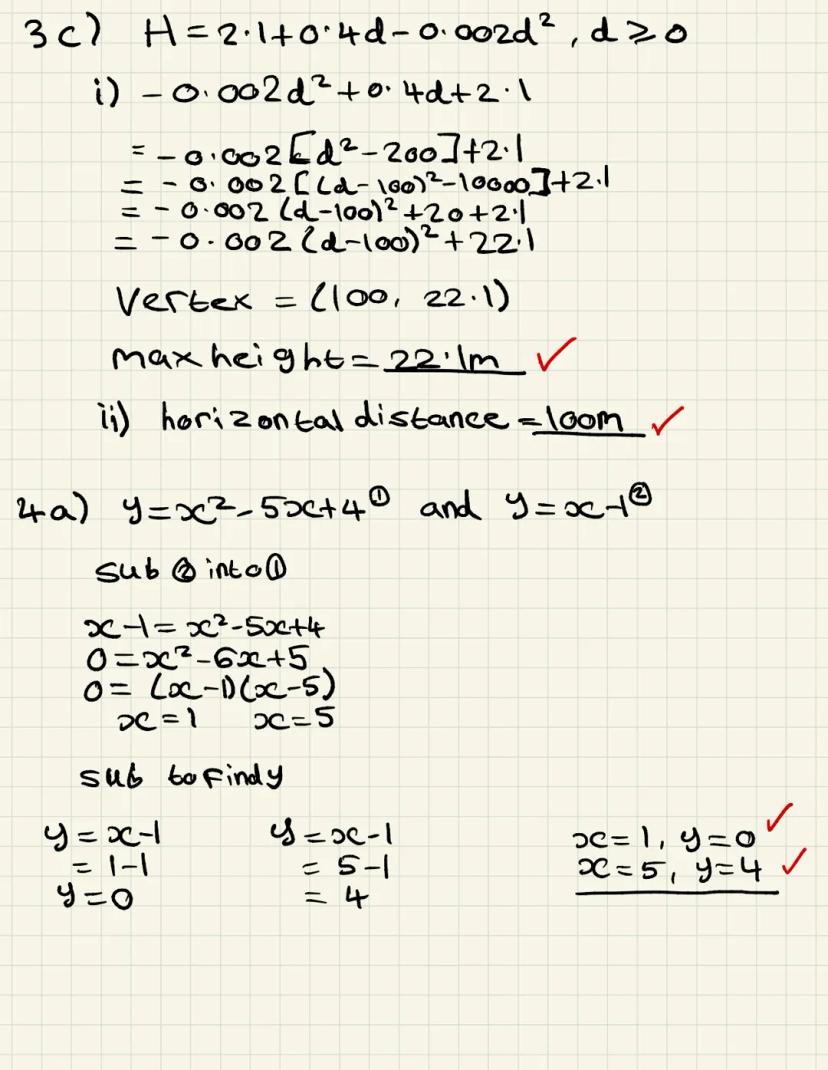 3c) H = 2·1+0·4d-0·002d², d ≥ 0
i) -0·002d²+0·4d+2·1
= -0·002[d²-200]+2·1
= -0·002[(d-100)²-10000]+2·1
= -0·002(d-100)²+20+2·1
= -0·002(d-100)²+22·1
Vertex = (100, 22·1)
max height = 22·1m ✓
ii) horizontal distance = 100m ✓
4a) y=x²-5x+4① and y=x-1②
sub ② into①
x-1=x²-5x+4
0=x²-6x+5
0=(x-1)(x-5)
x=1 x=5
sub to find y
y=x-1 y=x-1 x=1, y=0 ✓
=1-1 =5-1 x=5, y=4 ✓
y=0 =4